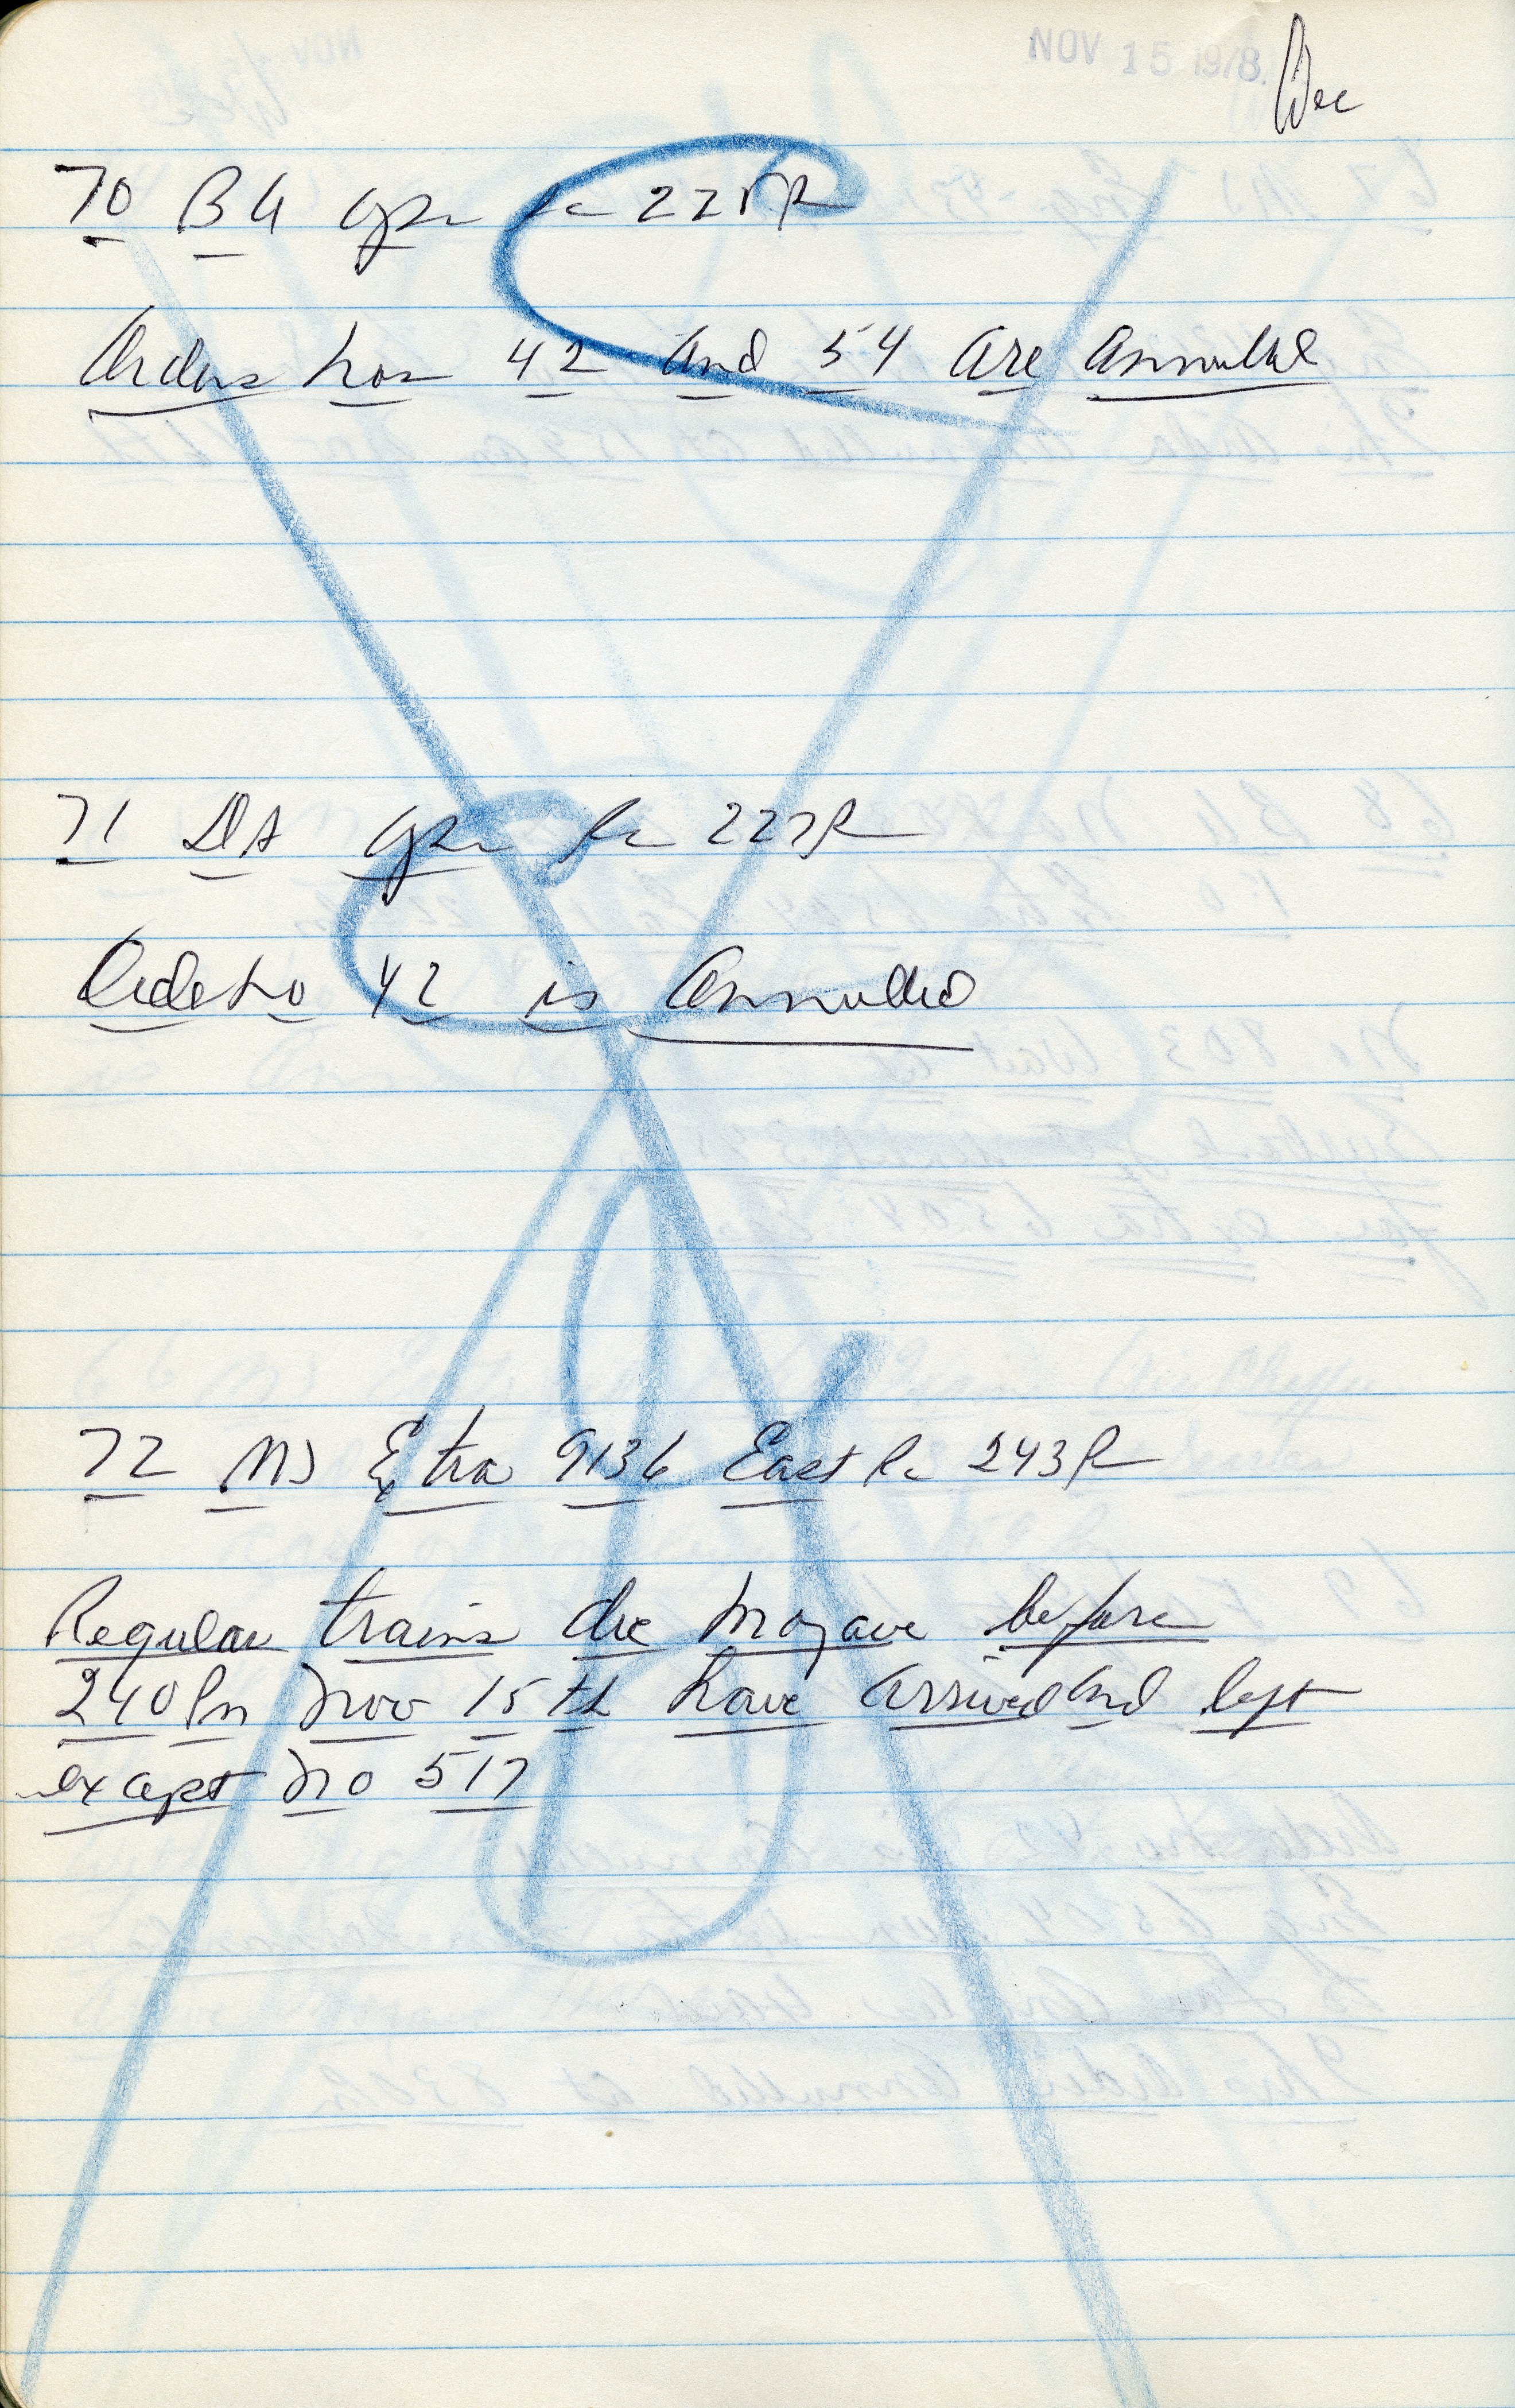 NOV 15 1978
70 BU Opr 225P
Orders nos 42 and 54 are annulled
71 DA Opr Rc 227P
Order no 42 is annulled
72 MJ Extra 9136 East Rc 243P
Regular trains due Mojave before
240Pm Nov 15th have arrived and left
except No 517